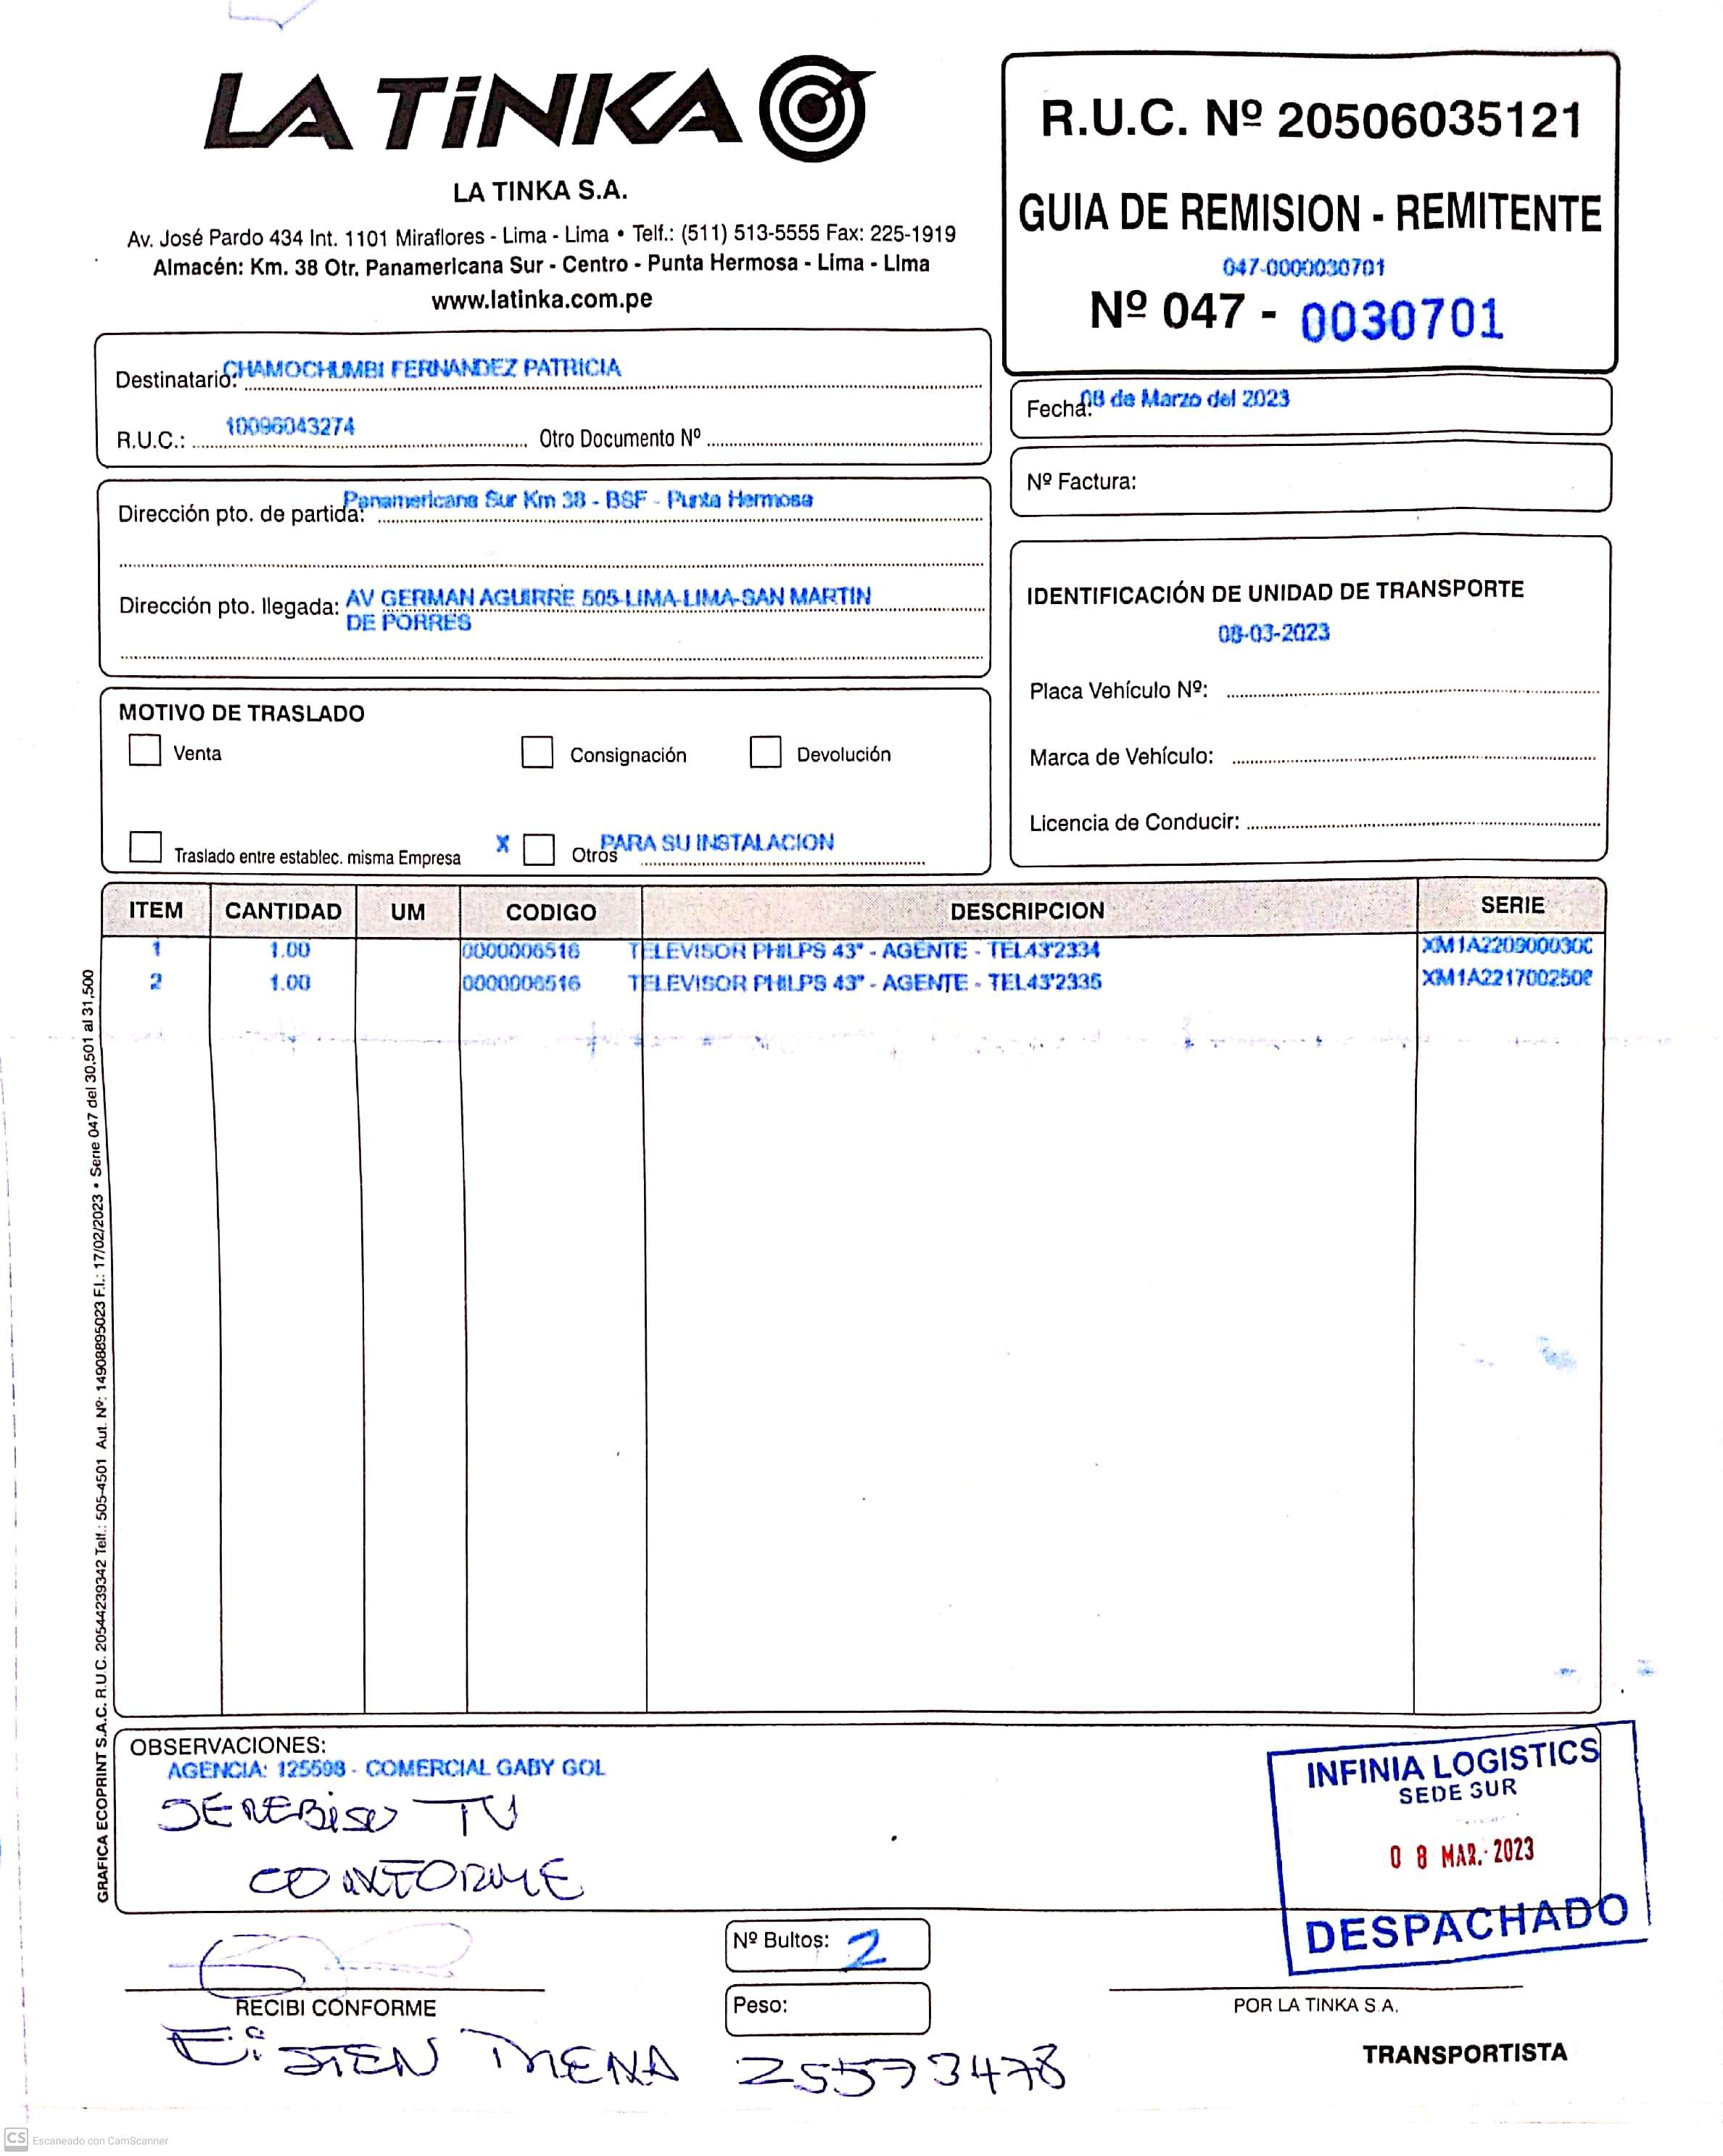 LA TiNKA
LA TINKA S.A.
Av. José Pardo 434 Int. 1101 Miraflores - Lima - Lima • Telf.: (511) 513-5555 Fax: 225-1919
Almacén: Km. 38 Otr. Panamericana Sur - Centro - Punta Hermosa - Lima - Lima
www.latinka.com.pe
R.U.C. Nº 20506035121
GUIA DE REMISION - REMITENTE
047-0000030701
Nº 047 - 0030701
Destinatario: CHAMOCHUMBI FERNANDEZ PATRICIA
R.U.C.: 10096043274 Otro Documento Nº
Fecha: 08 de Marzo del 2023
Nº Factura:
Dirección pto. de partida: Panamericana Sur Km 38 - BSF - Punta Hermosa
Dirección pto. llegada: AV GERMAN AGUIRRE 505-LIMA-LIMA-SAN MARTIN
DE PORRES
IDENTIFICACIÓN DE UNIDAD DE TRANSPORTE
08-03-2023
Placa Vehículo Nº:
Marca de Vehículo:
Licencia de Conducir:
MOTIVO DE TRASLADO
Venta Consignación Devolución
Traslado entre establec. misma Empresa X Otros PARA SU INSTALACION
ITEM CANTIDAD UM CODIGO DESCRIPCION SERIE
1 1.00 0000006516 TELEVISOR PHILPS 43" - AGENTE - TEL43'2334 XM1A220900030
2 1.00 0000006516 TELEVISOR PHILPS 43" - AGENTE - TEL43'2335 XM1A221700250
GRAFICA ECOPRINT S.A.C. R.U.C. 20544239342 Telf.: 505-4501 Aut. Nº: 14908895023 F.I.: 17/02/2023 • Serie 047 del 30,501 al 31,500
OBSERVACIONES:
AGENCIA: 125598 - COMERCIAL GABY GOL
SEREBISO TV
CONFORME
INFINIA LOGISTICS
SEDE SUR
08 MAR. 2023
DESPACHADO
RECIBI CONFORME
Nº Bultos: 2
Peso:
POR LA TINKA S.A.
TRANSPORTISTA
MENA 25573478
CS Escaneado con CamScanner